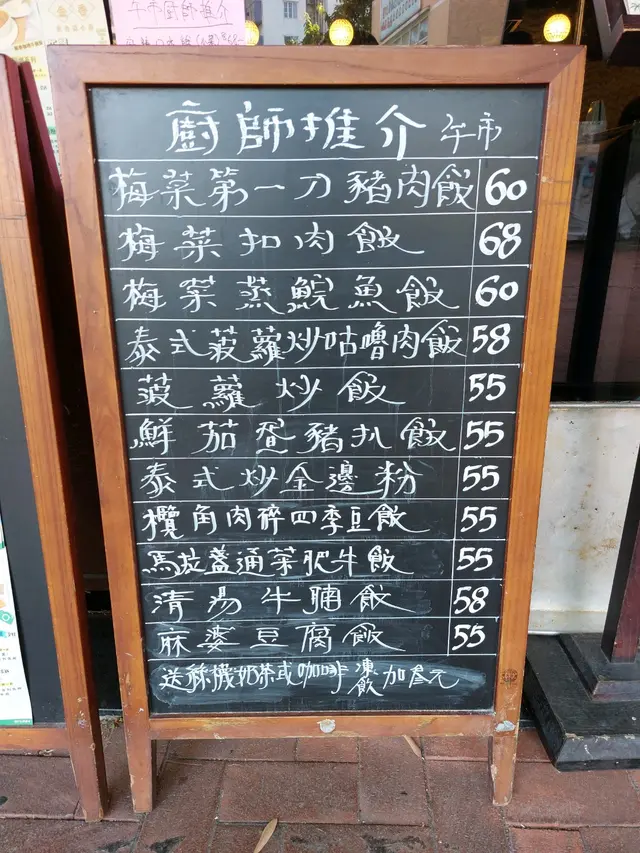 午市廚師推介
廚師推介 午市
梅菜第一刀豬肉飯 60
梅菜扣肉飯 68
梅菜蒸鯇魚飯 60
泰式菠蘿炒咕嚕肉飯 58
菠蘿炒飯 55
鮮茄蛋豬扒飯 55
泰式炒金邊粉 55
欖角肉碎四季豆飯 55
馬拉盞通菜肥牛飯 55
清湯牛腩飯 58
麻婆豆腐飯 55
送餐機奶茶或咖啡 凍飲加叁元